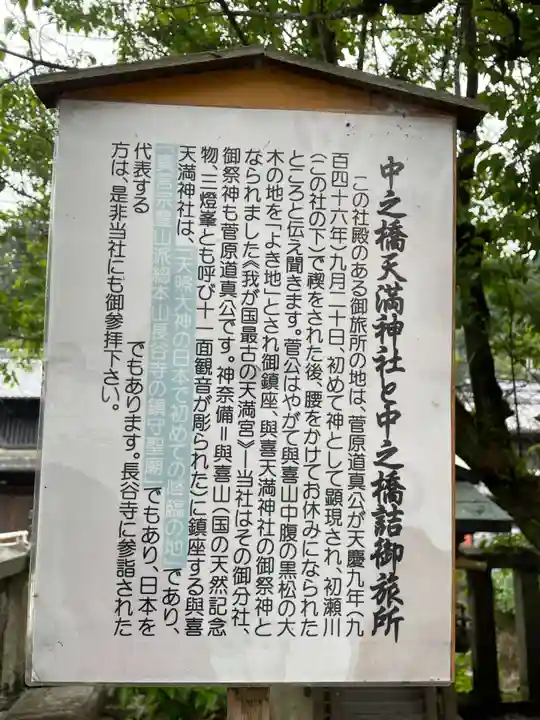 中之橋天満神社と中之橋詰御旅所
この社殿のある御旅所の地は、菅原道真公が天慶九年(九
百四十六年)九月二十日、初めて神として顕現され、初瀬川
(この社の下)で禊をされた後、腰をかけてお休みになられた
ところと伝え聞きます。菅公はやがて與喜山中腹の黒松の大
木の地を「よき地」とされ御鎮座、與喜天満神社の御祭神と
なられました《我が国最古の天満宮》―当社はその御分社、
御祭神も菅原道真公です。神奈備=與喜山(国の天然記念
物、三燈峯とも呼び十一面観音が彫られた)に鎮座する與喜
天満神社は、「天照大神の日本で初めての降臨の地」であり、
「真言宗豊山派総本山長谷寺の鎮守聖廟」でもあり、日本を
代表する
でもあります。長谷寺に参詣された
方は、是非当社にも御参拝下さい。